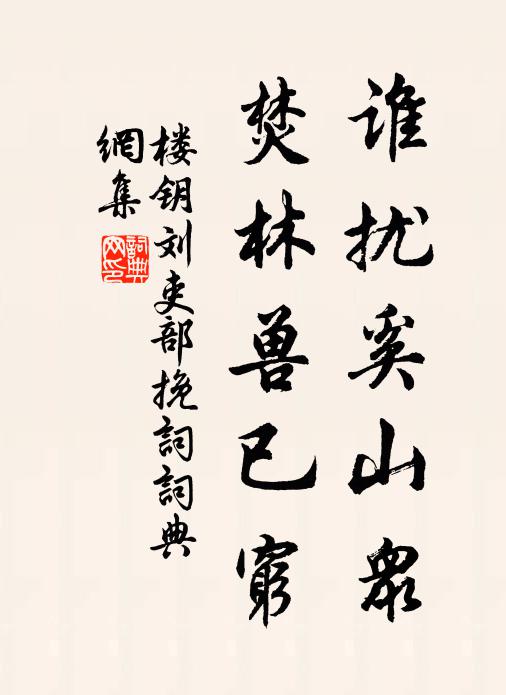 谁扰奚山众
焚林兽已穷
楼钥刘吏部挽词词典
網集
詞典网印